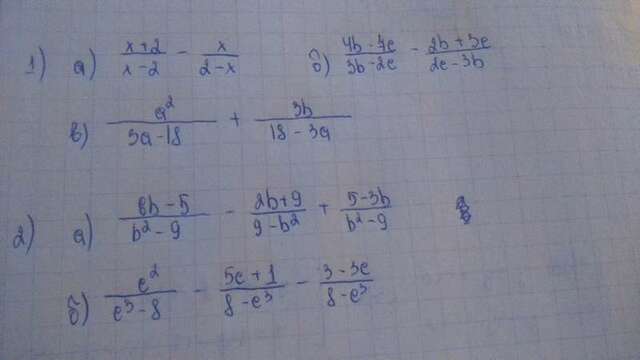 1) а) (x+2)/(x-2) - x/(2-x) б) (4b-7c)/(3b-2c) - (2b+5c)/(2c-3b)
в) a²/(3a-18) + 3b/(18-3a)
2) а) (6b-5)/(b²-9) - (2b+9)/(9-b²) + (5-3b)/(b²-9)
б) c²/(c³-8) - (5c+1)/(8-c³) - (3-3c)/(8-c³)